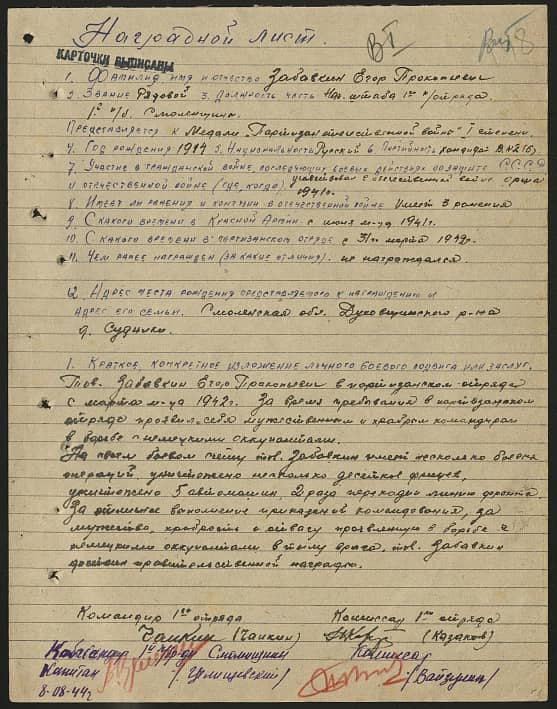 Наградной лист.
В I
КАРТОЧКИ ВЫПИСАНЫ
1. Фамилия имя и отчество Забавкин Егор Прокопьевич
2. Звание Рядовой 3. Должность часть Нач. штаба 1го п/отряда
1й п/б. Смоленщина.
Представляется к Медали "Партизан отечественной войны" I степени.
4. Год рождения 1914 5. Национальность Русский 6 Партийность кандидат ВКП(б)
7. Участие в гражданской войне, последующих боевых действиях по защите СССР
и отечественной войне (где, когда) участвовал в отечественной войне
1941г.
8. Имеет ли ранения и контузии в отечественной войне имеет 3 ранения
9. С какого времени в Красной Армии с июня м-ца 1941г.
10. С какого времени в партизанском отряде с 31го марта 1942г.
11. Чем ранее награжден (за какие отличия). не награждался.
12. Адрес места рождения представляемого к награждению и
адрес его семьи. Смоленская обл. Духовщинского р-на
д. Судники.
1. Краткое, конкретное изложение личного боевого подвига или заслуг.
Тов. Забавкин Егор Прокопьевич в партизанском отряде
с марта м-ца 1942г. За время пребывания в партизанском
отряде проявил себя мужественным и храбрым командиром
в борьбе с немецкими оккупантами.
На своем боевом счету тов. Забавкин имеет несколько боевых
операций, уничтожено несколько десятков фрицев,
уничтожено 5 автомашин, 2 раза переходил линию фронта
За отличное выполнение приказаний командования, за
мужество, храбрость и отвагу проявленную в борьбе с
немецкими оккупантами в тылу врага, тов. Забавкин
достоин правительственной награды.
Командир 1го отряда Комиссар 1го отряда
Чайкин (Чайкин) (Казаков)
1й п/бр-ды Смоленщина Комиссар
Капитан
8-08-44г.